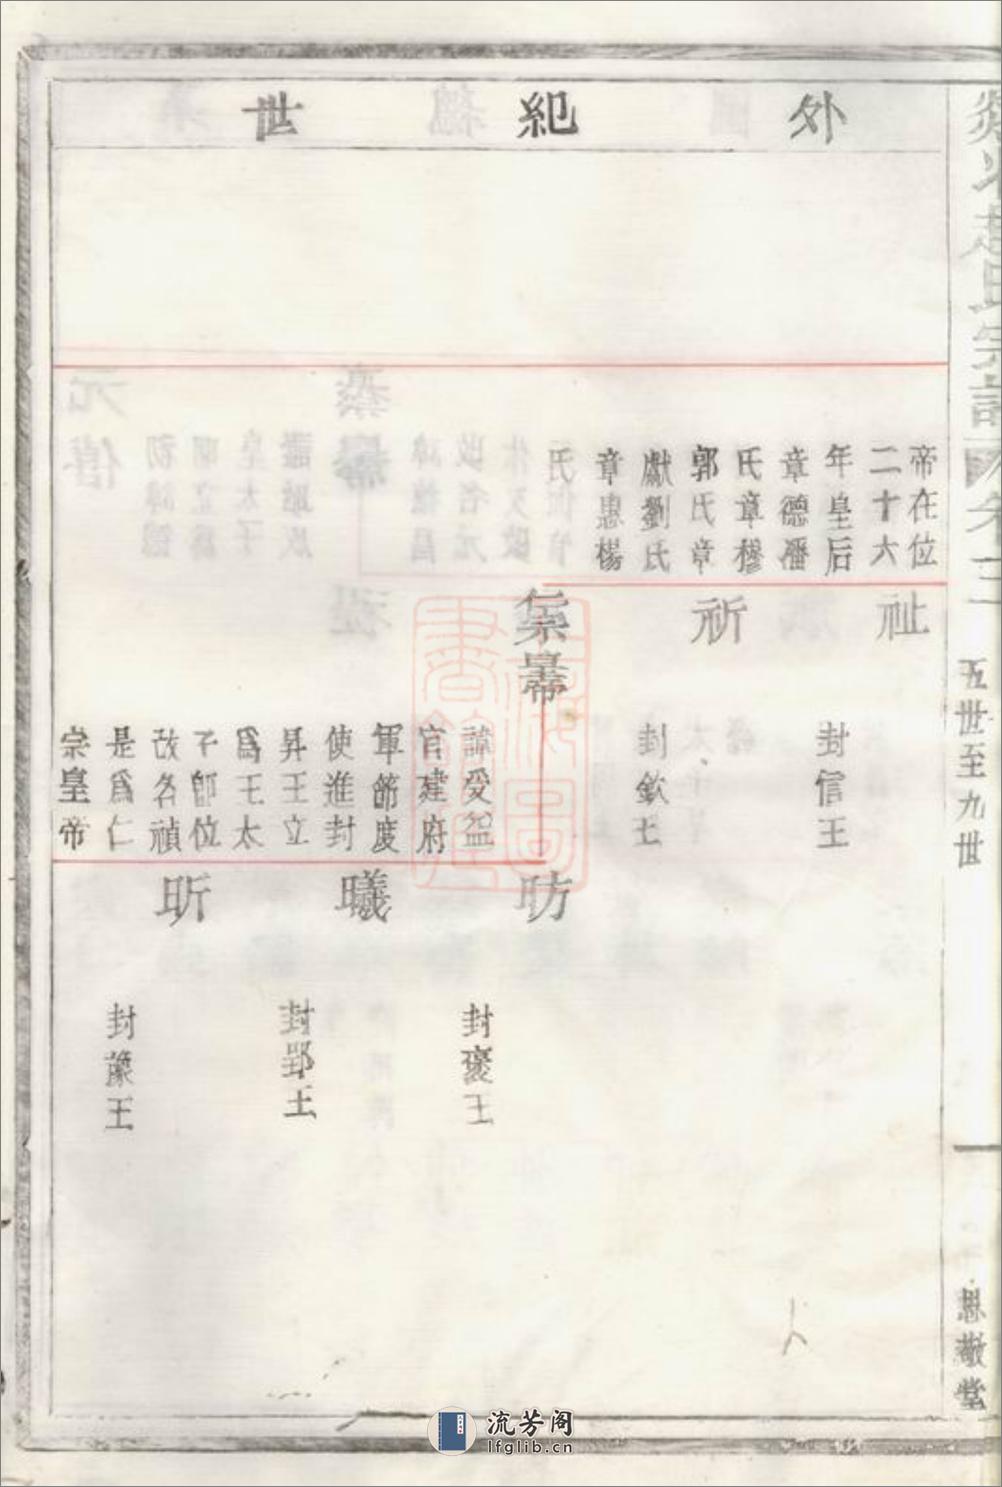 外紀世
帝在位
二十六
年皇后
章德潘
氏章穆
郭氏章
獻劉氏
章惠楊
氏
祉
封信王
祈
封欽王
諱受益
官建府
軍節度
使進封
昇王立
爲王太
子卽位
改名禎
是爲仁
宗皇帝
昉
封褒王
曦
封鄆王
昕
封豫王
趙氏宗譜
卷二
五世至九世
思敬堂
流芳阁
lfglib.cn